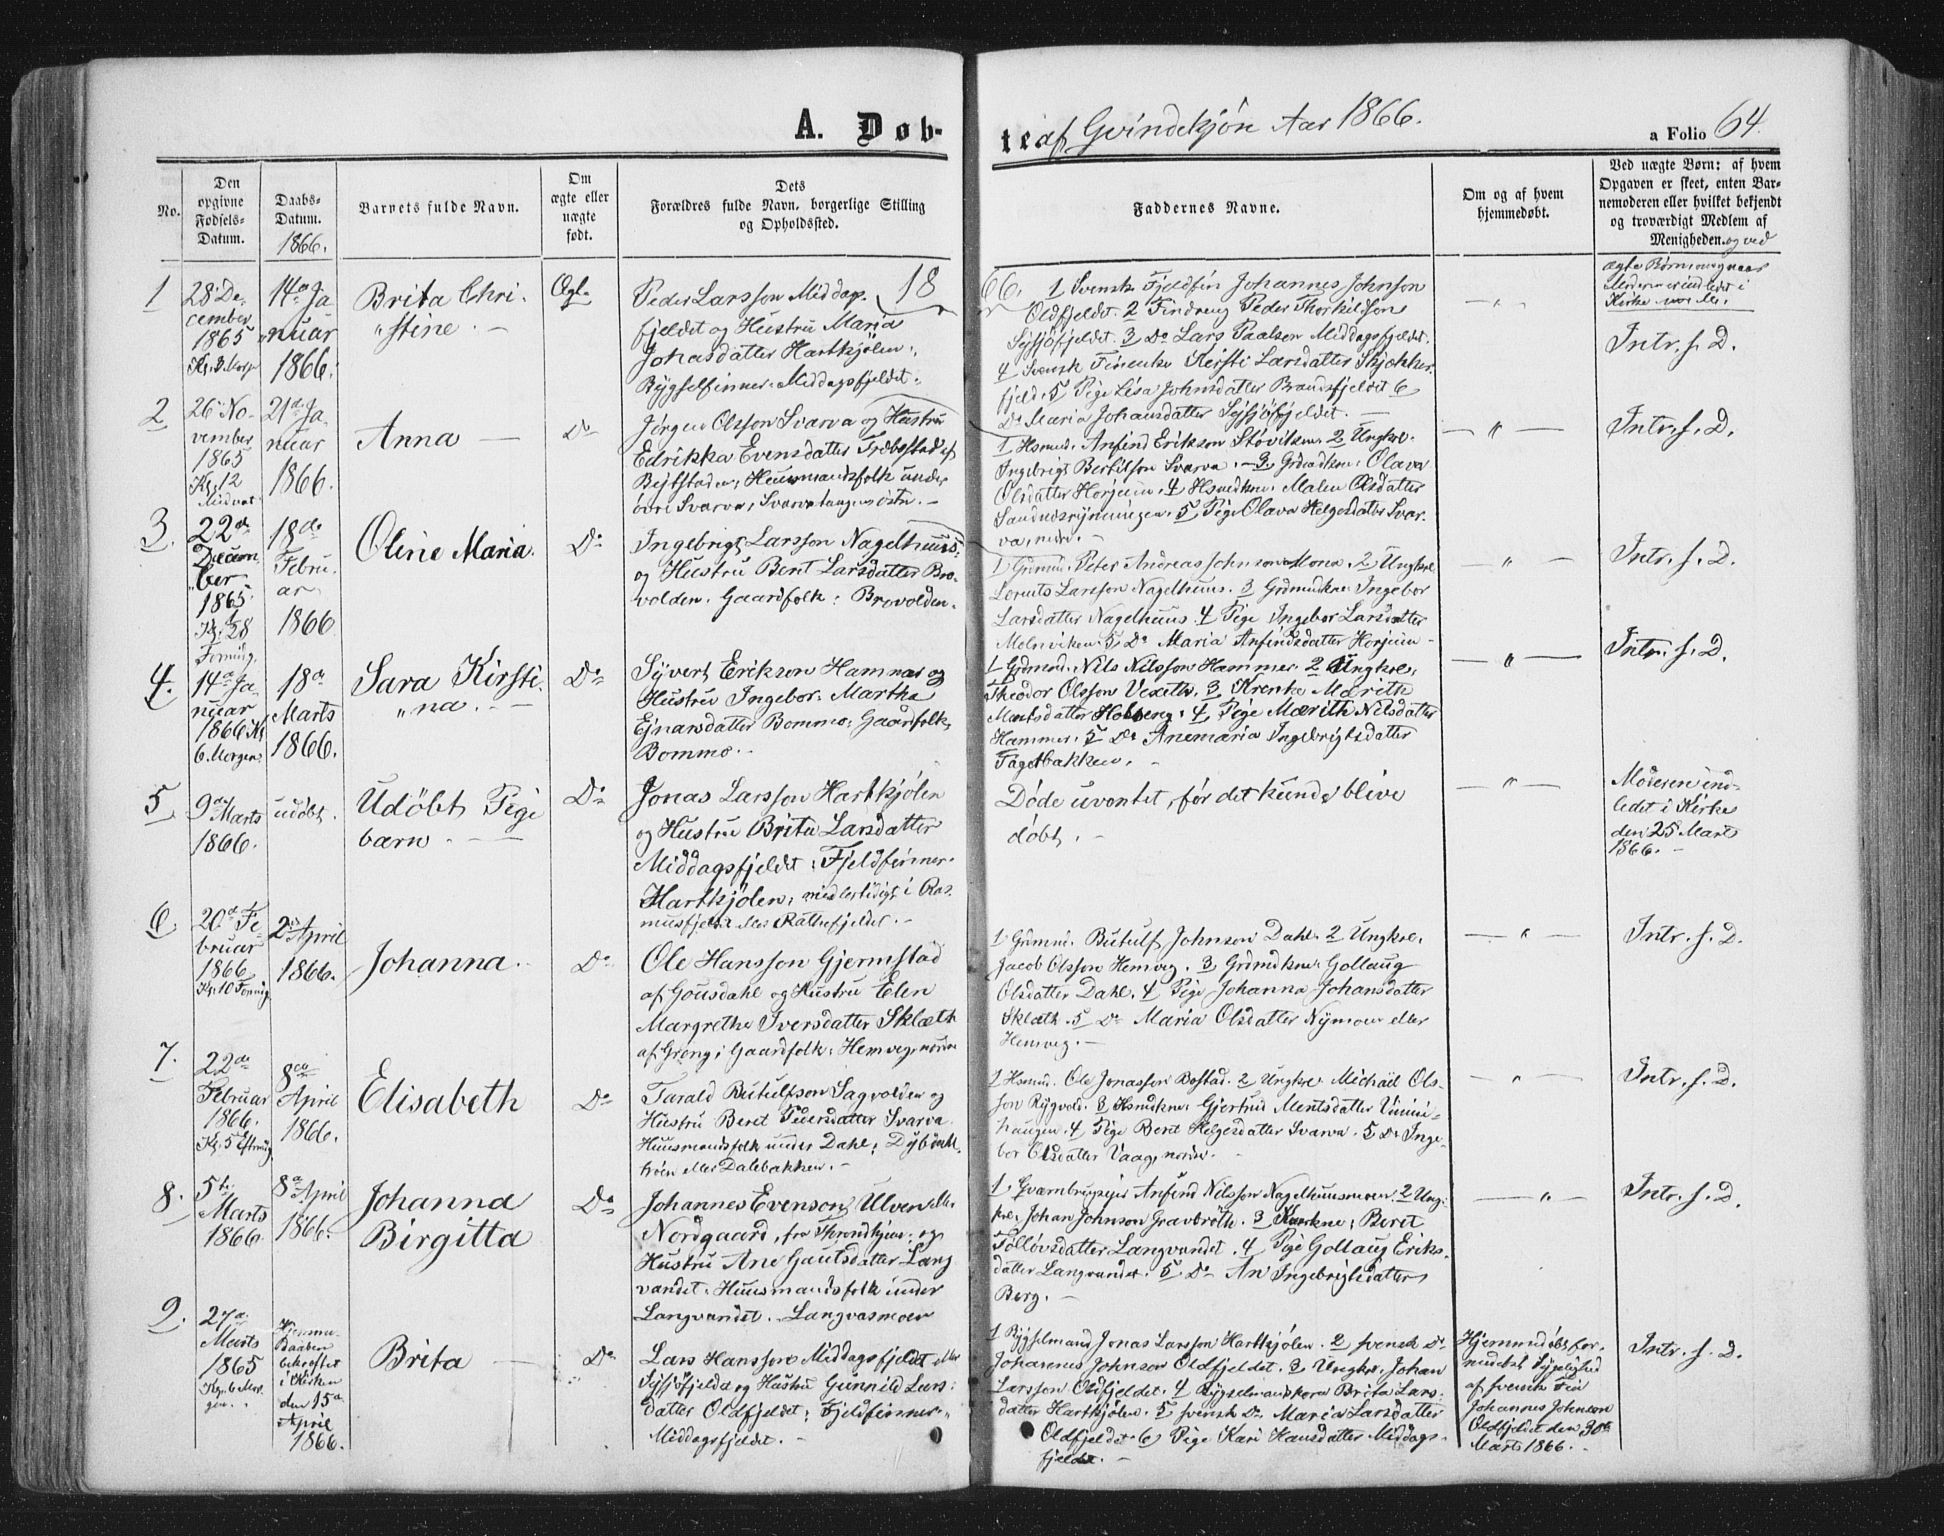 A. Døb-
te af Qvindekjøn Aar 1866.
a Folio 64.
No.
Den opgivne Fødsels-Datum.
Daabs-Datum. 1866.
Barnets fulde Navn.
Om ægte eller uægte født.
Dets Forældres fulde Navn, borgerlige Stilling og Opholdssted.
Faddernes Navne.
Om og af hvem hjemmedøbt.
Ved uægte Børn; af hvem Opgaven er skeet, enten Barnemoderen eller hvilket bekjendt og troværdigt Medlem af Menigheden. og ved
ægte Børn
Moderen indledet i
Kirke
18
66.
1
28 De-
cember
1865
14de Ja-
nuar
1866.
Brita Chri-
stine. —
Ægte
Peder Larsson Middags-
fjeldet og Hustru Maria
Johasdatter Hartkjølen,
Bygselfinner. Middagsfjeldet.
1 Svensk Fjeldfin Johannes Johnson
Oldfjeldet. 2 Findreng Peder Thorkildson
Sejsjøfjeldet. 3 Do Lars Paalsen Middagsfjeldet.
4 Svensk Finenke Kersti Larsdatter Skjækker-
fjeld. 5 Pige Lisa Johnsdatter Brandsfjeldet 6
Do Maria Johansdatter Sejsjøfjeldet. —
— " —
Intr. s. D.
2
26 No-
vember
1865
Kl. 12
Midnat
21de Ja-
nuar
1866.
Anna —
Do
Jørgen Olsson Svarva og Hustru
Edrikka Evensdatter Trøbstad af
Bejtstaden, Huusmandsfolk under
øvre Svarva, Svarvatangen østre. —
1 Hsmnd. Anfind Erikson Støviken. 2 Ungkre.
Ingebrigt Bertilson Svarva. 3 Grdmdkne. Olava
Olsdatter Horjem. 4 Hsmdkne. Malen Olsdatter
Sandnesrynningen. 5 Pige Olava Helgesdatter Svar-
va, nedre. —
— " —
Intr. s. D.
3.
22de
Decem-
ber
1865.
18de
Febru-
ar
1866
Oline Maria.
Do
Ingebrigt Larsson Nagelhuus,
og Hustru Berit Larsdatter Bro-
volden. Gaardfolk: Brovolden.
1 Grdmnd. Peter Andreas Johnson Mona. 2 Ungkre
Lorents Larsson Nagelhuus. 3 Grdmdkne. Ingebor
Larsdatter Nagelhuus. 4 Pige Ingebor Larsdatter
Molnviken. 5 Do Maria Anfindsdatter Horjem —
— " —
Intr. s. D.
4.
14de Ja-
nuar
1866 Kl.
6. Morgen.
18de
Marts
1866.
Sara Kirsti-
na. —
Do
Syvert Erikson Hammer og
Hustru Ingebor Martha
Ejnarsdatter Bommo, Gaardfolk,
Bommo. —
1 Grdmnd. Nils Nilsson Hammer. 2 Ungkre.
Theodor Olsson Vexeth. 3 Krenke Marith
Mentsdatter Holberg. 4 Pige Mærith Nilsdatter
Hammer. 5 Do Anemaria Ingebrigtsdatter
Fagerbakken. —
— " —
Intr. s. D.
5
9de Marts
1866.
udøbt.
Udøbt Pige-
barn. —
Do
Jonas Larsson Hartkjølen
og Hustru Brita Larsdatter
Middagsfjeldet, Fjeldfinner.
Hartkjølen, midlertidigt i Ras-
musfjeldet eller Rathefjeldet. —
Døde uventet, før det kunde blive
døbt. —
— " —
Moderen ind-
ledet i Kirke
den 25 Mart
1866. —
6
20de Fe-
bruar
1866
Kl. 10 Formdg.
2den April
1866.
Johanna. —
Do
Ole Hansson Gjermstad
af Gousdahl og Hustru Elen
Margrethe Iversdatter Sklæth
af Grong, Gaardfolk, Hemveg, nordre
1 Grdmnd. Butulf Johnson Dahl. 2 Ungkre.
Jacob Olsson Hemveg. 3 Grdmdkne. Gollaug
Olsdatter Dahl. 4 Pige Johanna Johansdatter
Sklæth. 5 Do Maria Olsdatter Nymoen eller
Hemveg. —
— " —
Intr. s. D.
7.
22de
Februar
1866.
Kl. 5 Eftrmdg.
8de
April
1866.
Elisabeth
Do
Tarald Butulfson Sagvolden og
Hustru Berit Pedersdatter Svarva.
Huusmandsfolk under Dahl;
eller Dalebakken. —
1 Hsmnd. Ole Jonasson Bostad. 2 Ungkre. Michael Ols-
son Rygvold. 3 Hsmdkne. Gjertrud Mentsdatter
haugen. 4 Pige Berit Helgesdatter Svarva. 5 Do Inge-
bor Olsdatter Vaag, nordre. —
— " —
Intr. s. D.
8.
5te
Marts
1866.
8de April
1866.
Johanna
Birgitta
Do
Johannes Evenson Ulven eller
Nordgaard, fra Throndhjem, og
Hustru Ane Gautsdatter Lang-
vandet. Huusmandsfolk under
Langvandet. Langvasmoen
1. Qværnbrugsejer Anfind Nilsson Nagelhuusmoen. 2 Ung-
kre. Johan Johnson Gravbrøth. 3 Krkne. Beret
Follovsdatter Langvandet. 4 Pige Gollaug Eriks-
datter Langvandet. 5 Do An Ingebrigtsdatter
Berg. —
— " —
Intr. s. D.
9.
27de
Marts
1865
Kl. 6 Mor-
gen.
Hjemme-
Daaben
bekræftet
i Kirken
den 15de
April
1866.
Brita —
Do
Lars Hansson Middagsfjeldet eller
Sejsjøfjeldet og Hustru Gunnild Lars-
datter Oldfjeldet; Fjeldfinner.
Middagsfjeldet. —
1 Bygselmand Jonas Larsson Hartkjølen. 2 svensk Do
Johannes Johnson Oldfjeldet. 3 Ungkre. Johan
Larsson Oldfjeldet. 4 Bygselmandskone Brita Lars-
datter Hartkjølen. 5 svensk Do Maria Larsdatter
Oldfjeldet 6 Pige Kari Hansdatter Middags-
fjeldet. —
Hjemmedøbt for-
medelst Sygelighed
af svensk Fin
Johannes Johnson
Oldfjeldet den 30te
Marts 1866. —
Intr. s. D.